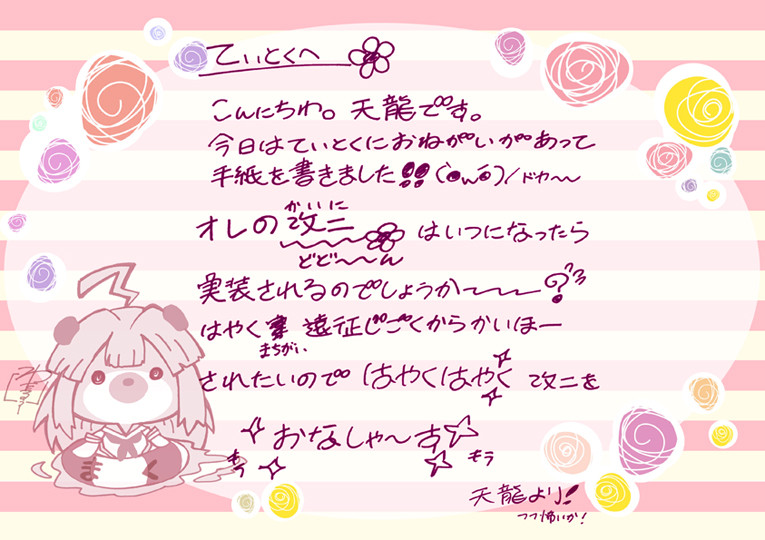 ていとくへ
こんにちわ。天龍です。
今日はていとくにおねがいがあって
手紙を書きました!!(`・ω・´)ノドヤ〜〜
かいに
オレの改二はいつになったら
どど〜〜ん
実装されるのでしょうか〜〜〜?
はやく 遠征じごくからかいほー
まちがい
されたいので はやくはやく 改二を
おなしゃ〜す
もう
もう
天龍より!
フフ怖いか!